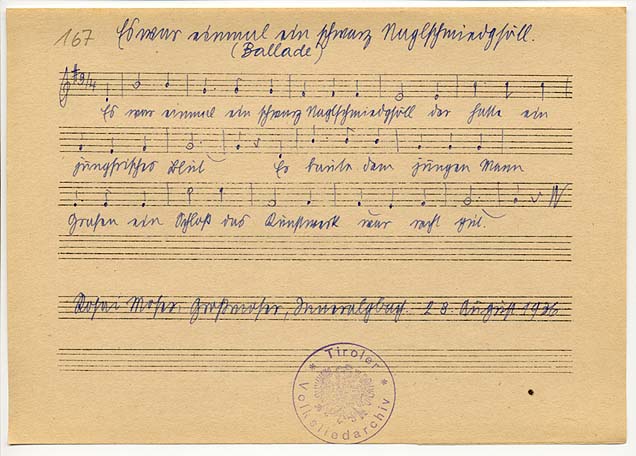 167
Es war einmal ein schwarz Naglschmiedgsöll.
(Ballade)
3/4
Es war einmal ein schwarz Naglschmiedgsöll der hatte ein
jungfrisches Blut Es baute dem jungen Mann
Grafen ein Schloß das Kunstwerk war recht gut.
Moser, Großmoser, Inneralpbach. 28. August 1936
* Tiroler *
Volksliedarchiv